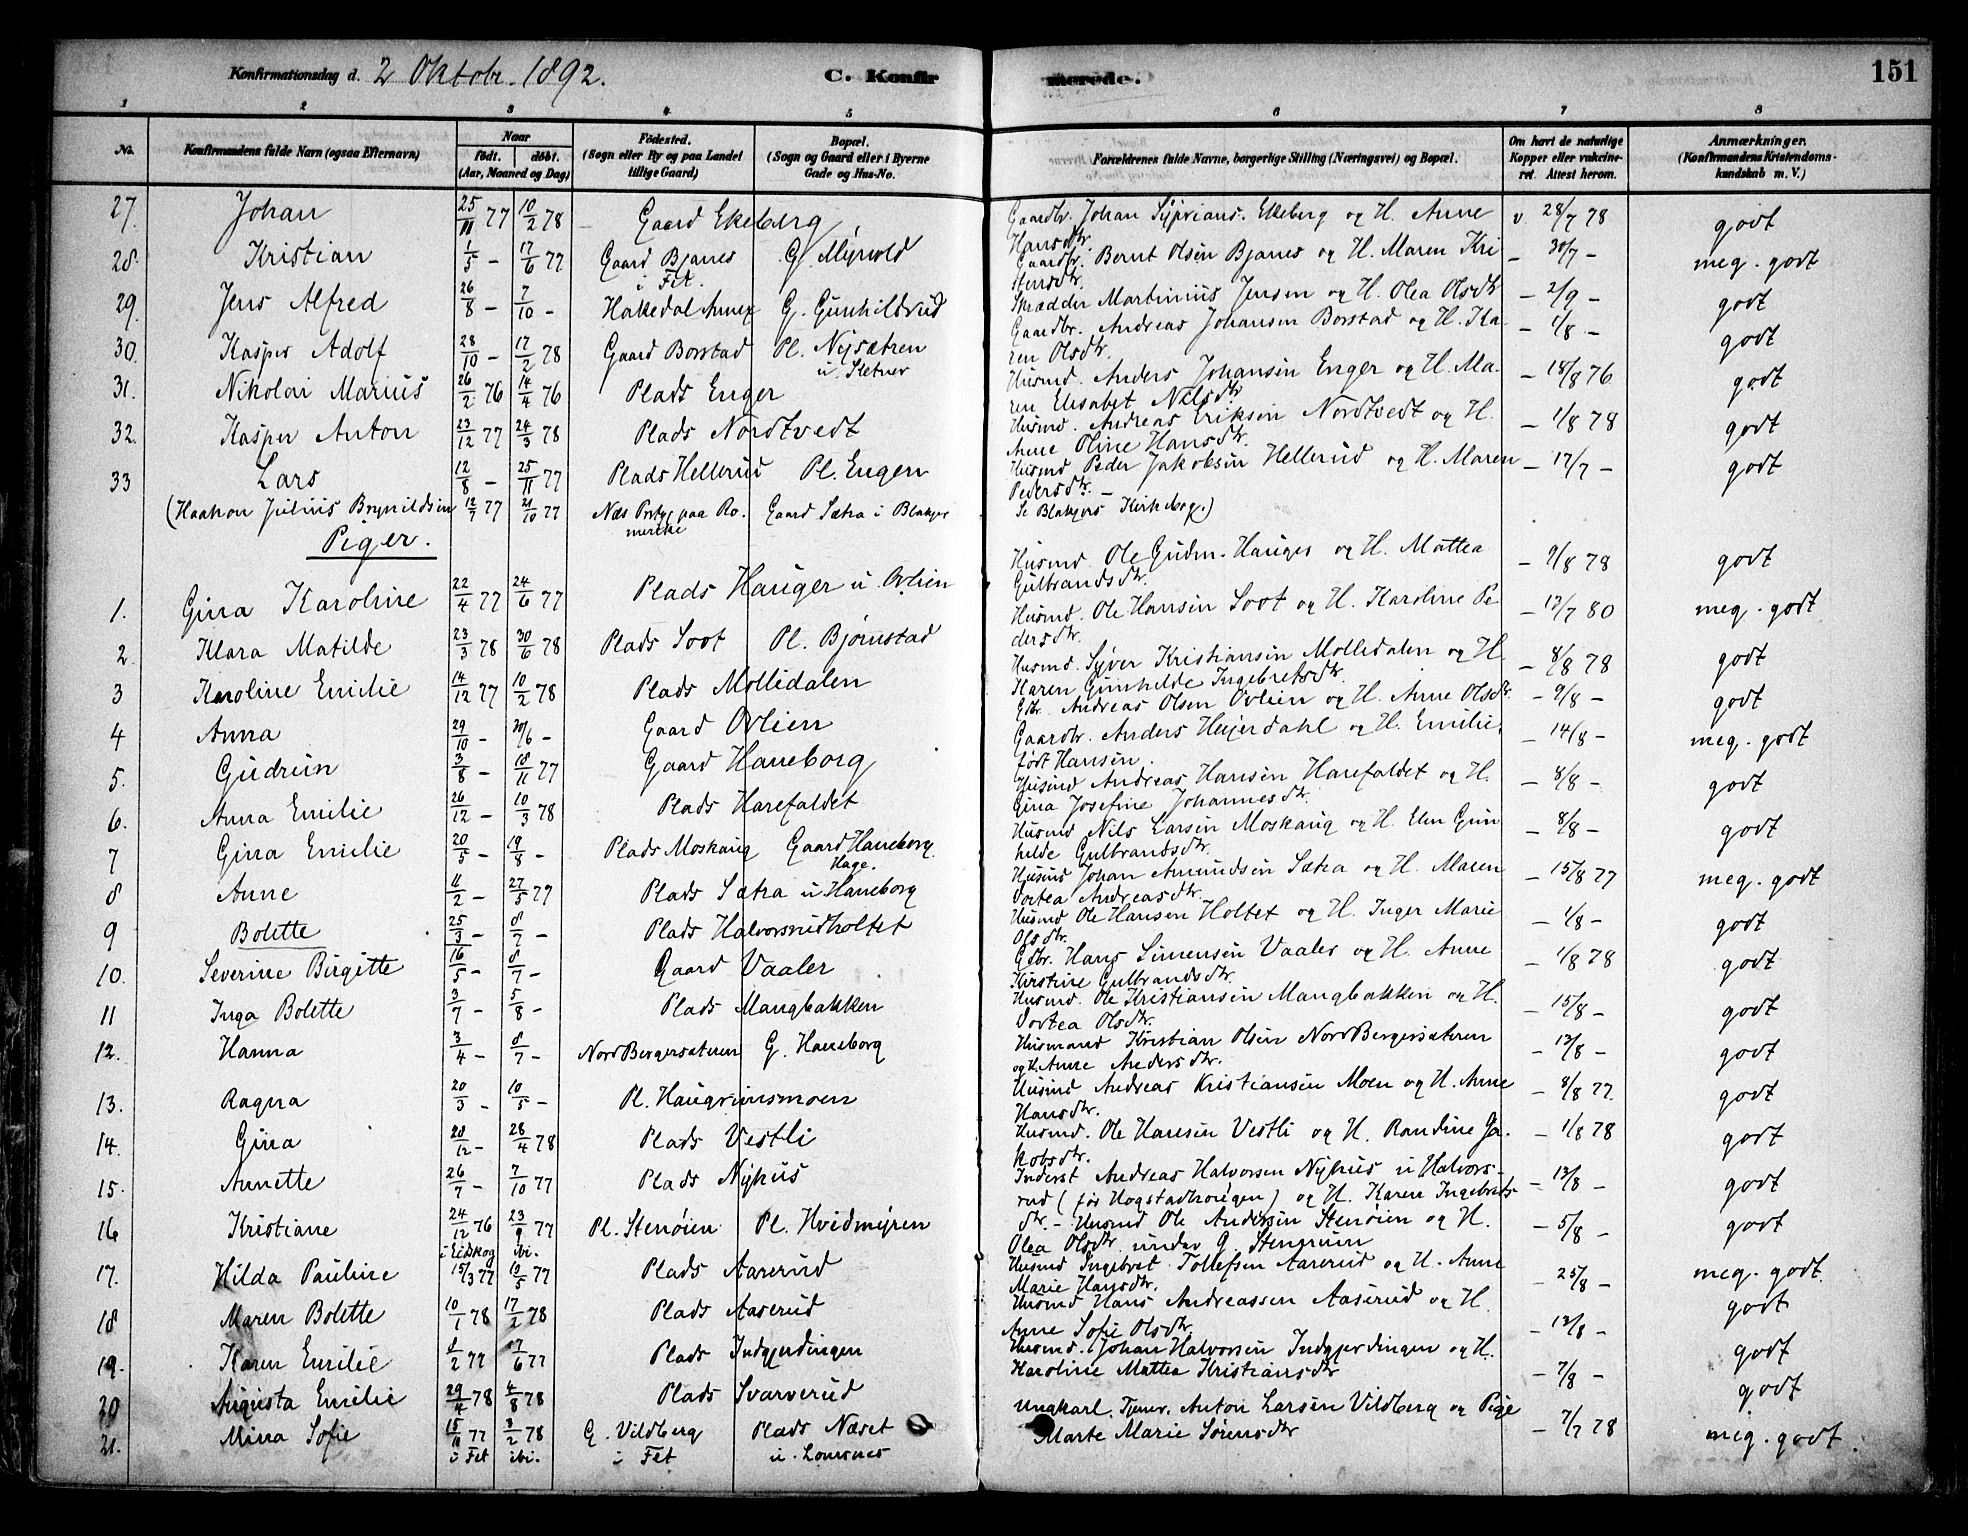 Konfirmationsdag d. 2 Oktobr. 1892. C. Konfirmerede. 151
1 2 3 4 5 6 7 8
No. Konfirmandens fulde Navn (ogsaa Efternavn) Naar født. døbt. (Aar, Maaned og Dag) Fødested. (Sogn eller By og paa Landet tillige Gaard) Bopæl. (Sogn og Gaard eller i Byerne Gade og Hus-No. Forældrenes fulde Navne, borgerlige Stilling (Næringsvei) og Bopæl. Om havt de naturlige Kopper eller vakcineret. Attest herom. Anmærkninger. (Konfirmandens Kristendomskundskab m. V.)
27. Johan 25/11 77 10/2 78 Gaard Ekeberg Gaardbr. Johan Syprians. Ekeberg og H. Anne Hansdtr. v. 28/7 78 godt
28. Kristian 1/5 - 17/6 77 Gaard Bjanes i Fet. G. Myrvold Gaardbr. Bernt Olsen Bjanes og H. Maren Kristensdtr. - 30/7 - meg. godt
29. Jens Alfred 26/8 - 7/10 - Hakedal Annex G. Gunhildrud Skrædder Martinius Jensen og H. Olea Olsdtr - 2/9 - godt
30. Kasper Adolf 28/10 - 17/2 78 Gaard Borstad Pl. Nysætren u. Sletner Gaardbr. Andreas Johansen Borstad og H. Karen Olsdtr. - 1/8 - godt
31. Nikolai Marius 26/2 76 14/4 76 Plads Enger Husmd. Anders Johansen Enger og H. Maren Elisabet Nilsdtr - 18/8 76 godt
32. Kasper Anton 23/12 77 24/3 78 Plads Nordtvedt Husmd. Andreas Eriksen Nordtvedt og H. Anne Oline Hansdtr. - 1/8 78 godt
33 Lars 12/8 - 25/11 77 Plads Hellerud Pl. Engen Husmd Peder Jakobsen Hellerud og H. Maren Pedersdtr. - - 17/7 - godt
(Haakon Julius Brynildsen 12/7 77 21/10 77 Næs Prstgj. paa Romerike Gaard Sætra i Blakjer Se Blakjers Kirkebog.)
Piger.
1. Gina Karoline 22/4 77 24/6 77 Plads Hauger u. Ovlien Husmd. Ole Gudm. Hauger og H. Mattea Gulbrandsdtr. - 9/8 78 godt
2. Klara Matilde 23/3 78 30/6 78 Plads Soot Pl. Bjørnstad Husmd. Ole Hansen Soot og H. Karoline Pedersdtr. - 13/7 80 meg. godt
3 Karoline Emilie 14/12 77 10/2 78 Plads Mollidalen Husmd. Syver Kristiansen Mollidalen og H. Karen Gunhilde Ingebretsdtr. - 8/8 78 godt
4 Anna 29/10 - 30/6 - Gaard Ovlien Gbr. Andreas Olsen Ovlien og H. Anne Olsdtr. - 9/8 - godt
5. Gudrun 3/8 - 18/11 77 Gaard Haneborg Gaardbr. Anders Heyerdahl og H. Emilie, født Hansen. - 14/8 - meg. godt
6. Anna Emilie 26/12 - 10/3 78 Plads Harefaldet Husmd Andreas Hansen Harefaldet og H. Gina Josefine Johannesdtr. - 8/8 - godt
7 Gina Emilie 20/5 - 19/8 - Plads Moskaug Gaard Haneborg Hage. Husmd Nils Larsen Moskaug og H. Elen Gunhilde Gulbrandsdtr. - 8/8 - godt
8 Anne 11/2 - 27/5 79 Plads Sætra u Haneborg Husmd Johan Amundsen Sætra og H. Maren Dortea Andreasdtr. - 15/8 77 meg. godt
9 Bolette 25/3 - 8/7 - Plads Halvorsrudholtet Husmd Ole Hansen Holtet og H. Inger Marie Olsdtr. - 1/8 - godt
10. Severine Birgitte 16/5 - 8/7 - Gaard Vaaler Gdbr. Hans Simensen Vaaler og H. Anne Kirstine Gulbrandsdtr. - 1/8 78 godt
11 Inga Bolette 3/7 - 5/8 - Plads Mangbakken Husmd. Ole Kristiansen Mangbakken og H. Dortea Olsdtr. - 15/8 - godt
12. Hanna 3/4 - 8/7 - Nord Bergersæteren G. Haneborg Husmand Kristian Olsen Nord Bergersæteren og H. Anne Andersdtr. - 13/8 - godt
13. Ragna 20/3 - 10/5 - Pl. Haugrimsmoen Husmd Andreas Kristiansen Moen og H. Anne Hansdtr. - 8/8 77. godt
14. Gina 28/12 - 28/4 78 Plads Vestli Husmd. Ole Hansen Vestli og H. Randine Jakobsdtr. - 1/8 78 godt
15. Annette 26/7 - 7/10 77 Plads Nyhus Inderst Andreas Halvorsen Nyhus u Halvorsrud (før Hogstadhougen) og H. Karen Ingebretsdtr. - - 13/8 - godt
16 Kristiane 24/12 76 i Eidskog 23/9 77 ibi. Pl. Stenøien Pl. Hvidmyren Husmd Ole Andersen Stenøien og H. Olea Olsdtr. under G. Stenrum - 5/8 - godt
17. Hilda Pauline 15/3 77 10/5 77 Plads Aarerud Husmd Ingebret Tollefsen Aarerud og H. Anne Marie Hansdtr. - 25/8 - meg. godt.
18 Maren Bolette 10/1 78 17/2 78 Plads Aaserud Husmd Hans Andreassen Aaserud og H. Anne Sofie Olsdtr. - 12/8 - godt
19. Karen Emilie 1/2 77 17/6 77 Plads Indgjerdingen Husmd. Johan Halvorsen Indgjerdingen og H. Karoline Mattea Kristiansdtr - 7/8 - godt
20 Augusta Emilie 29/4 78 4/8 78 Plads Svarverud godt
21. Mina Sofie 15/11 77 i Fet 3/2 78 ibi. G. Vildberg i Fet Plads Næset u. Lomsnes Ungkarl. Tjener. Anton Larsen Vildberg og Pige Marte Marie Sørensdtr - 7/7 78 meg. godt.